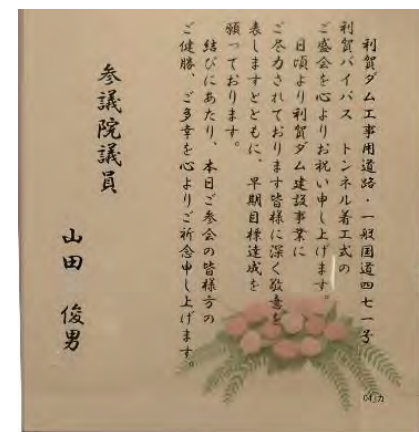 利賀ダム工事用道路・一般国道四七一号
利賀バイパス トンネル着工式の
ご盛会を心よりお祝い申し上げます。
日頃より利賀ダム建設事業に
ご尽力されております皆様に深く敬意を
表しますとともに、早期目標達成を
願っております。
結びにあたり、本日ご参会の皆様方の
ご健勝、ご多幸を心よりご祈念申し上げます。
参議院議員
山田 俊男